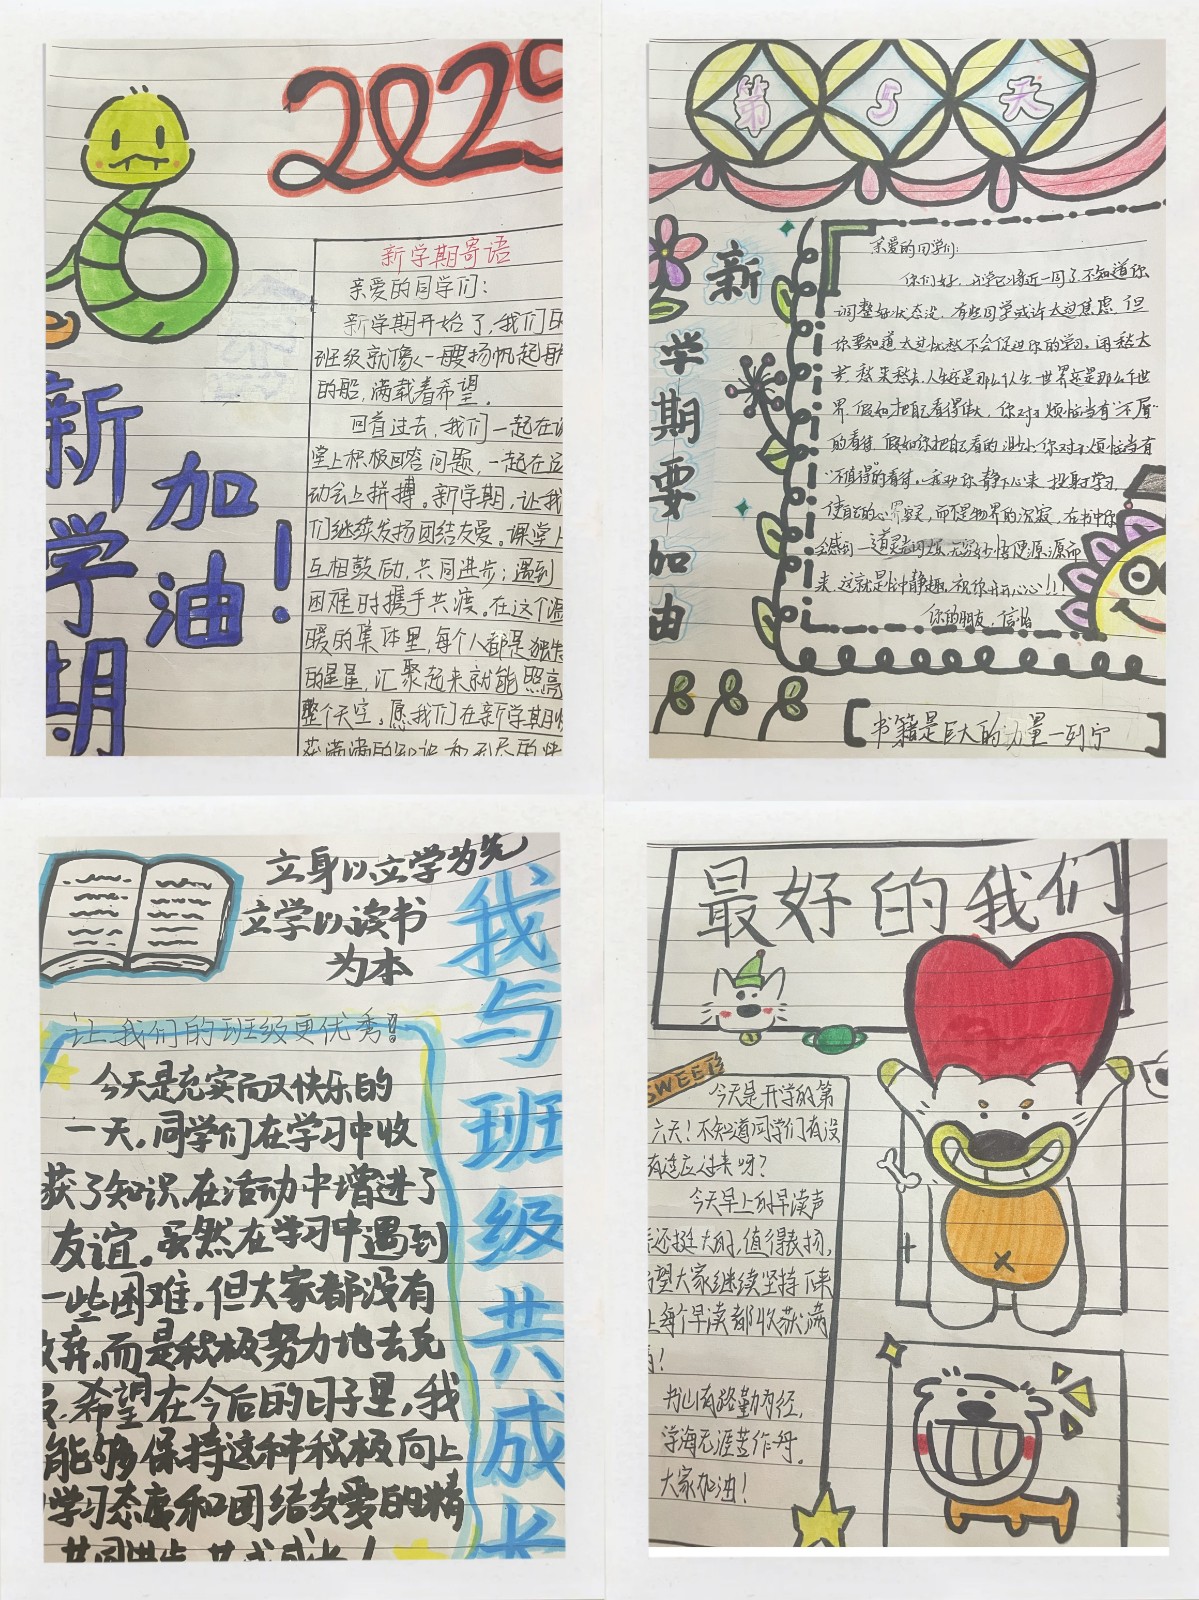 2025
新学期
加油!
新学期寄语
亲爱的同学们:
新学期开始了,我们的
班级就像一艘扬帆起航
的船,满载着希望。
回首过去,我们一起在课
堂上积极回答问题,一起在运
动会上拼搏。新学期,让我
们继续发扬团结友爱。课堂上
互相鼓励,共同进步;遇到
困难时携手共渡。在这个温
暖的集体里,每个人都是独特
的星星,汇聚起来就能照亮
整个天空。愿我们在新学期收
获满满的知识和无尽的快
第5天
新学期要加油
亲爱的同学们:
你们好,开学已将近一周了,不知道你
调整好状态没,有些同学或许太过焦虑,但
你要知道太过忧愁不会促进你的学习。用愁太
多,愁来愁去,人生还是那么个人生,世界还是那么个世
界,假如把自己看得伟大,你对于烦恼当有"不屑"
的看待,假如你把自己看的渺小,你对于烦恼当有
"不值得"的看待。我劝你静下心来,投身于学习,
使自己的心灵,而不是物界的沉寂,在书中你
会感到一道,无穷妙悟便源源而
来,这就是忙中静趣,祝你开开心心!!!
你的朋友,信怡
书籍是巨大的力量—列宁
立身以立学为先
立学以读书
为本
我与班级共成长
让我们的班级更优秀!
今天是充实而又快乐的
一天,同学们在学习中收
获了知识,在活动中增进了
友谊。虽然在学习中遇到
一些困难,但大家都没有
放弃,而是积极努力地去克
服,希望在今后的日子里,我
能够保持这种积极向上
学习态度和团结友爱的精
共同进步,共成成长!
最好的我们
SWEET
今天是开学的第
六天!不知道同学们有没
有适应过来呀?
今天早上的早读声
音还挺大的,值得表扬,
希望大家继续坚持下来
让每个早读都收获满
满!
书山有路勤为径,
学海无涯苦作舟。
大家加油!